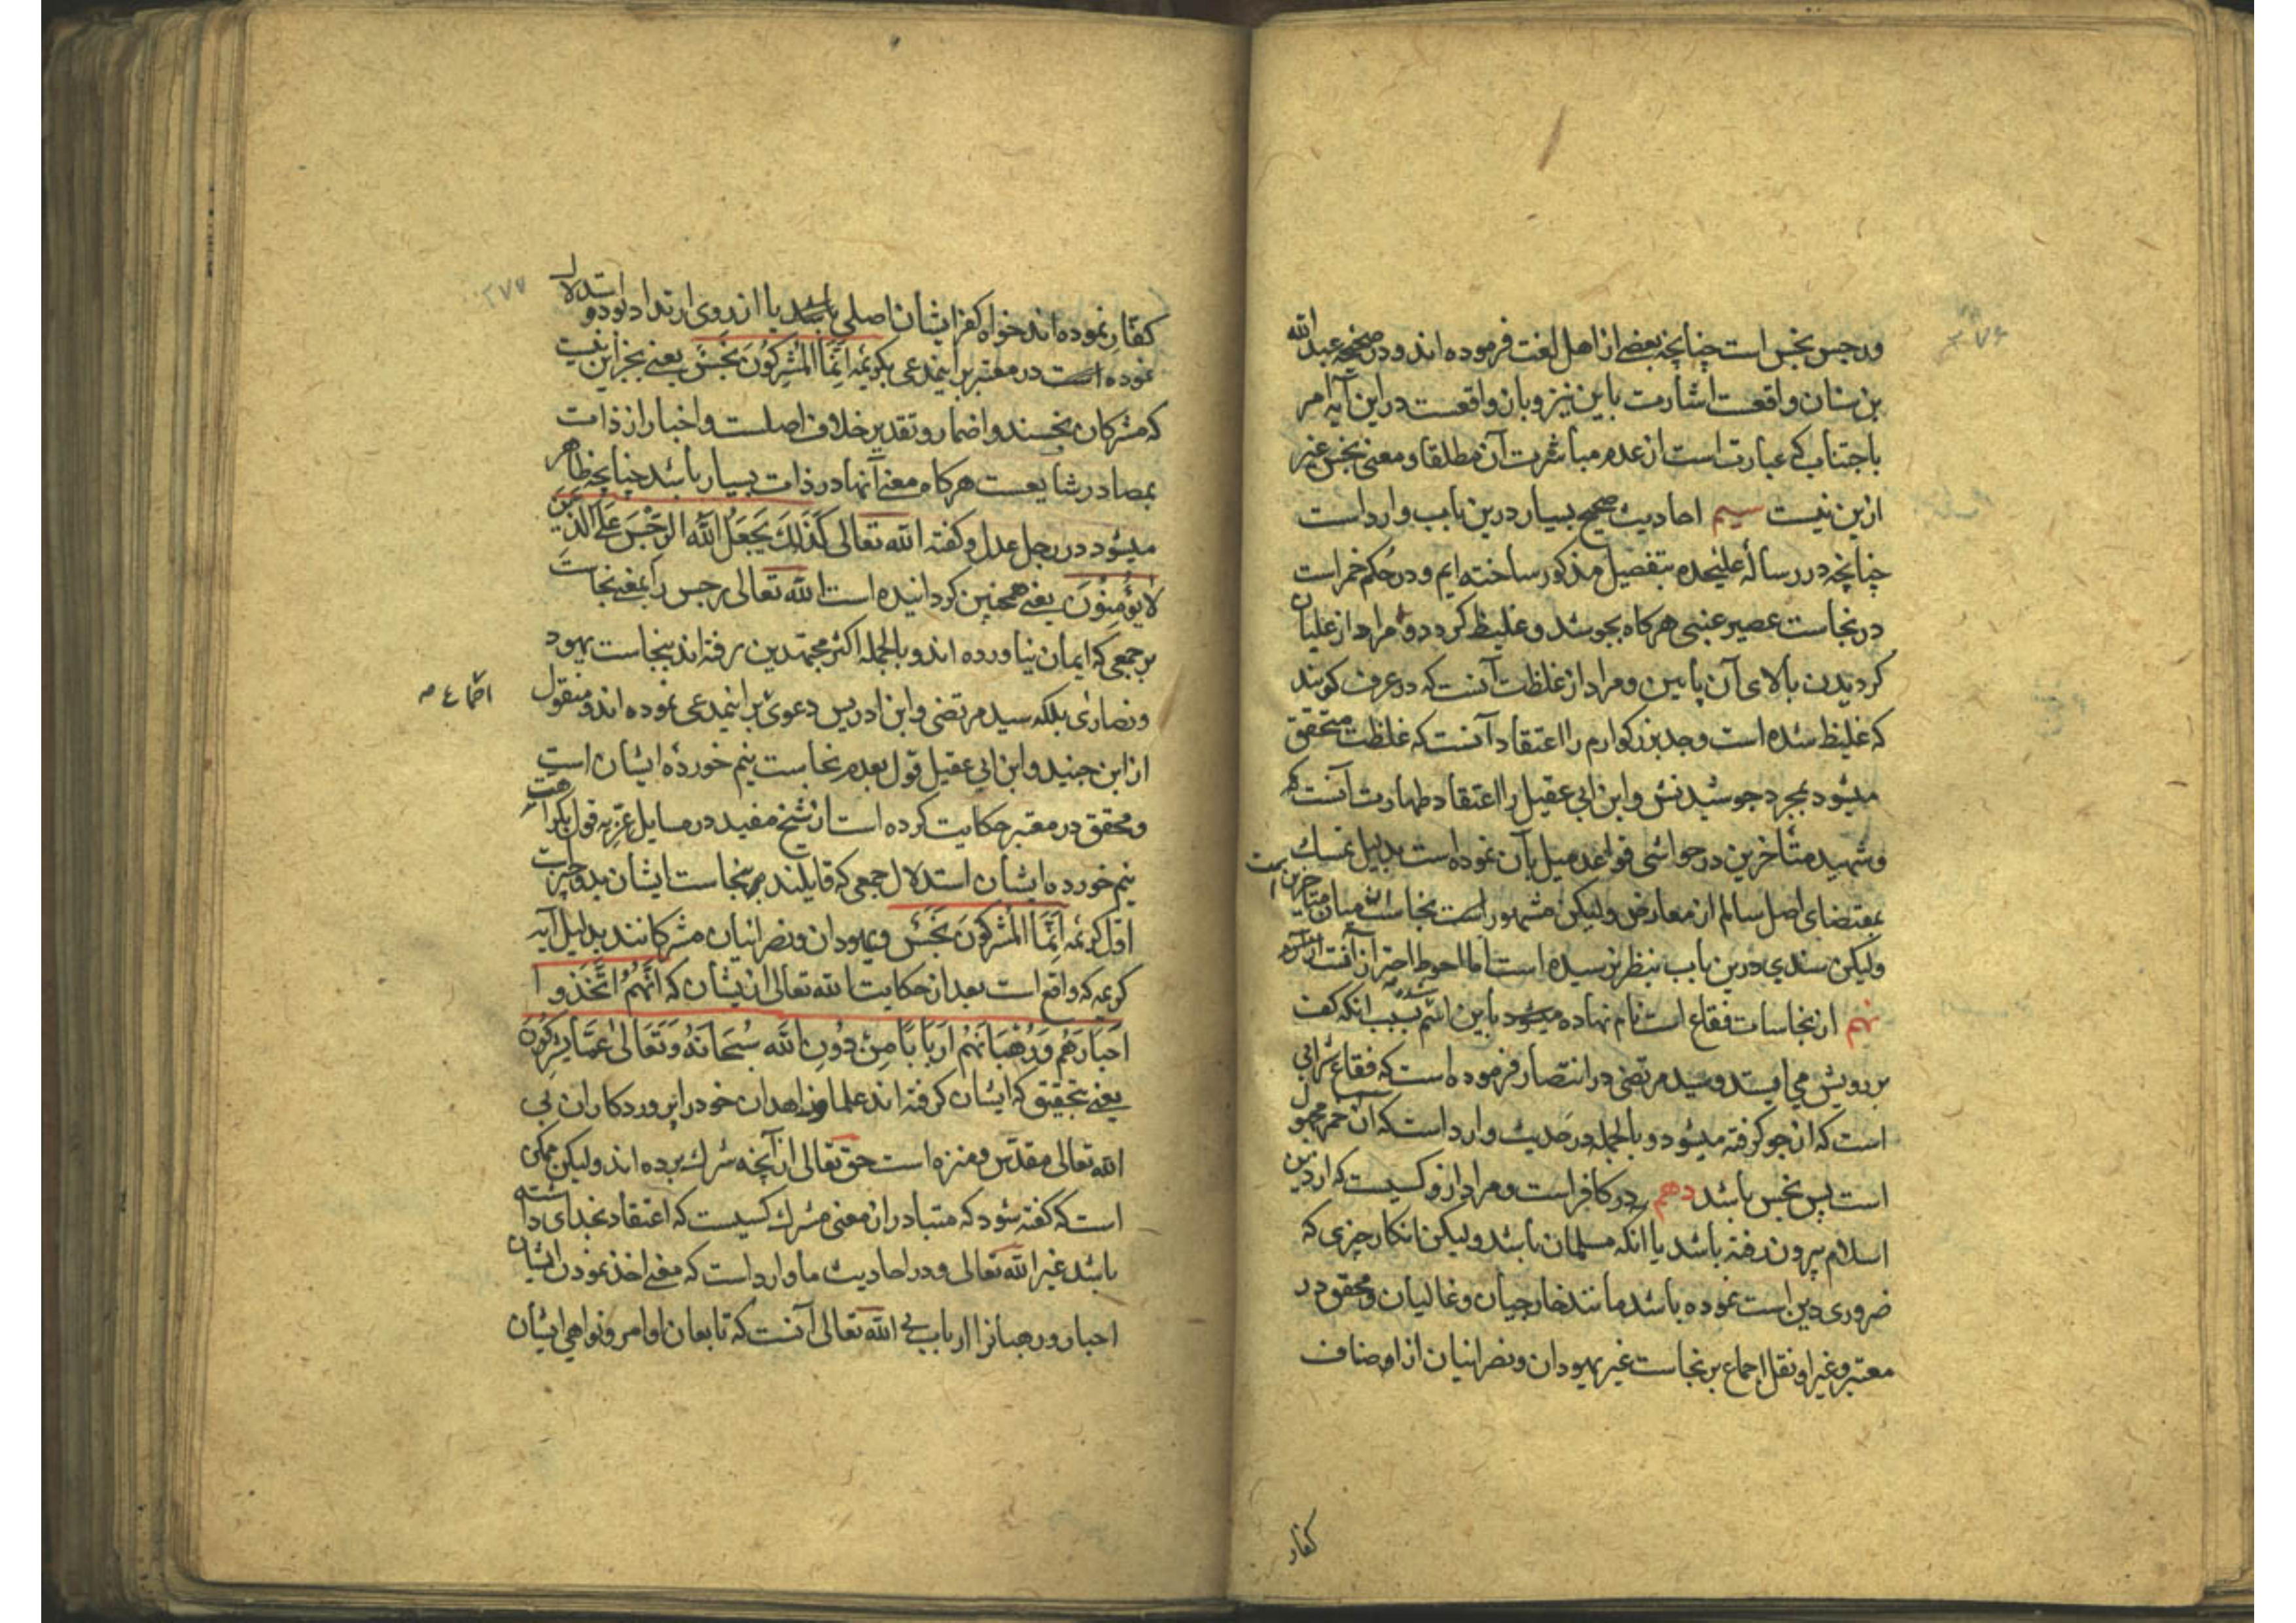 ۲۷۶
ورجس نجس است چنانچه بعضی از اهل لغت فرموده اند و در صحیحه عبدالله
بن سنان واقعست اشارت باین نیز و بان واقعست در این آیه امر
باجتناب که عبارتست از عدم مباشرت آن مطلقا و معنی نجس غیر
ازین نیست سیم احادیث صحیح بسیار درین باب وارد است
چنانچه در رسالهٔ علیحده بتفصیل مذکور ساخته ایم و در حکم خمر است
در نجاست عصیر عنبی هرکاه بجوشد و غلیظ کردد و مراد از غلیان
کردیدن بالای آن پایین و مراد از غلظت آنست که در عرف کویند
که غلیظ شده است و جد بزرکوارم را اعتقاد آنست که غلظت متحقق
میشود بمجرد جوشیدنش و ابن ابی عقیل را اعتقاد طهارت آنست که
و شهید متأخرین در حواشی قواعد میل بآن نموده است بدلیل تمسک
بمقتضای اصل سالم از معارض ولیکن مشهور است نجاست میان متأخرین
ولیکن سندی درین باب بنظر نرسیده است اما احوط احتراز آنست
نهم از نجاسات فقاع است نام نهاده میشود باین اسم بسبب انکه کف
بر رویش می ایستد و سید مرتضی در انتصار فرموده است که فقاع شرابی
است که از جو کرفته میشود و بالجمله در حدیث وارد است که آن خمر مجهول
است پس نجس باشد دهم در کافر است و مراد ازو کسیست که از دین
اسلام بیرون رفته باشد یا انکه مسلمان باشد ولیکن انکار چیزی که
ضروری دین است نموده باشد مانند خارجیان و غالیان و محقق در
معتبر و غیر او نقل اجماع بر نجاست غیر یهودان و نصرانیان از اصناف
کفار
۲۷۷
کفار نموده اند خواه کفر ایشان اصلی باشد یا از روی ارتداد بود و استدلال
نموده است در معتبر بر اینمدعی بکریمه اِنَّمَا المُشرِکُونَ نَجَسٌ یعنی بجز این نیست
که مشرکان نجسند و اضمار و تقدیر خلاف اصلست و اخبار از ذات
بمصادر شایعست هرکاه معنی آنها در ذات بسیار باشد چنانچه ظاهر
میشود در رجل عدل و کفته الله تعالی کَذَلِكَ یَجعَلُ اللهُ الرِّجسَ عَلَی الَّذینَ
لا یُؤمِنُونَ یعنی همچنین کردانیده است الله تعالی رجس را بمعنی نجاست
بر جمعی که ایمان نیاورده اند و بالجمله اکثر مجتهدین رفته اند بنجاست یهود
و نصاری بلکه سید مرتضی و ابن ادریس دعوی بر اینمدعی نموده اند و منقول
اجماع صح
از ابن جنید و ابن ابی عقیل قول بعدم نجاست نیم خوردهٔ ایشان است
و محقق در معتبر حکایت کرده است از شیخ مفید در مسایل غریه قول بکراهت
نیم خورده ایشان استدلال جمعی که قایلند بر نجاست ایشان بدو چیز است
اول کریمه اِنَّمَا المُشرِکُونَ نَجَسٌ و یهودان و نصرانیان مشرکانند بدلیل آیه
کریمه که واقع است بعد از حکایت الله تعالی از ایشان که اَنَّهُمُ اتَّخَذُوا
اَحبَارَهُم وَ رُهبَانَهُم اَربَابًا مِن دُونِ الله سُبحَانَهُ وَ تَعَالی عَمَّا یُشرِکُونَ
یعنی بتحقیق که ایشان کرفته اند علما و زاهدان خود را پروردکاران بی
الله تعالی مقدس و منزه است حق تعالی از آنچه شرك برده اند ولیکن ممکن
است که کفته شود که متبادر از معنی مشرك کسیست که اعتقاد بخدای داشته
باشد غیر الله تعالی و در احادیث ما وارد است که معنی اخذ نمودن ایشان
احبار و رهبانرا ارباب بی الله تعالی آنست که تابعان اوامر و نواهی ایشان